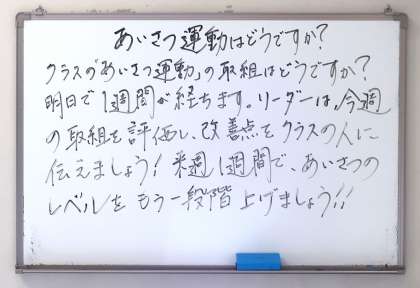 あいさつ運動はどうですか?
クラスの「あいさつ運動」の取組はどうですか?
明日で1週間が経ちます。リーダーは、今週
の取組を評価し、改善点をクラスの人に
伝えましょう!来週1週間で、あいさつの
レベルをもう一段階上げましょう!!